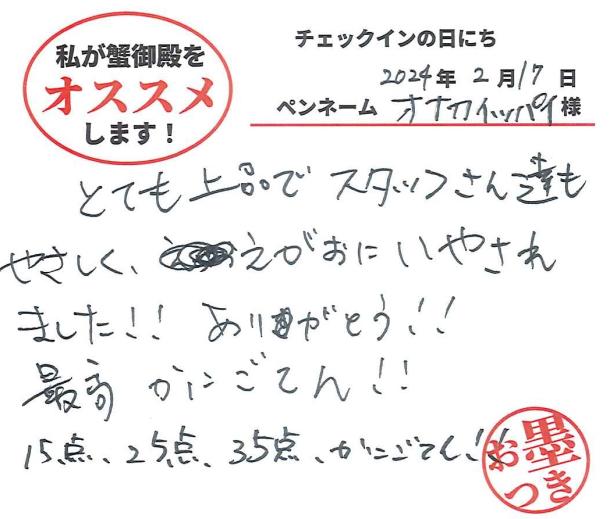 私が蟹御殿を
オススメ
します！
チェックインの日にち
2024年 2月17日
ペンネーム オナカイッパイ様
とても上品で スタッフさん達も
やさしく、えがおにいやされ
ました!! ありがとう!!
最高 かにごてん!!
15点、25点、35点、かにごてん!!
お墨つき